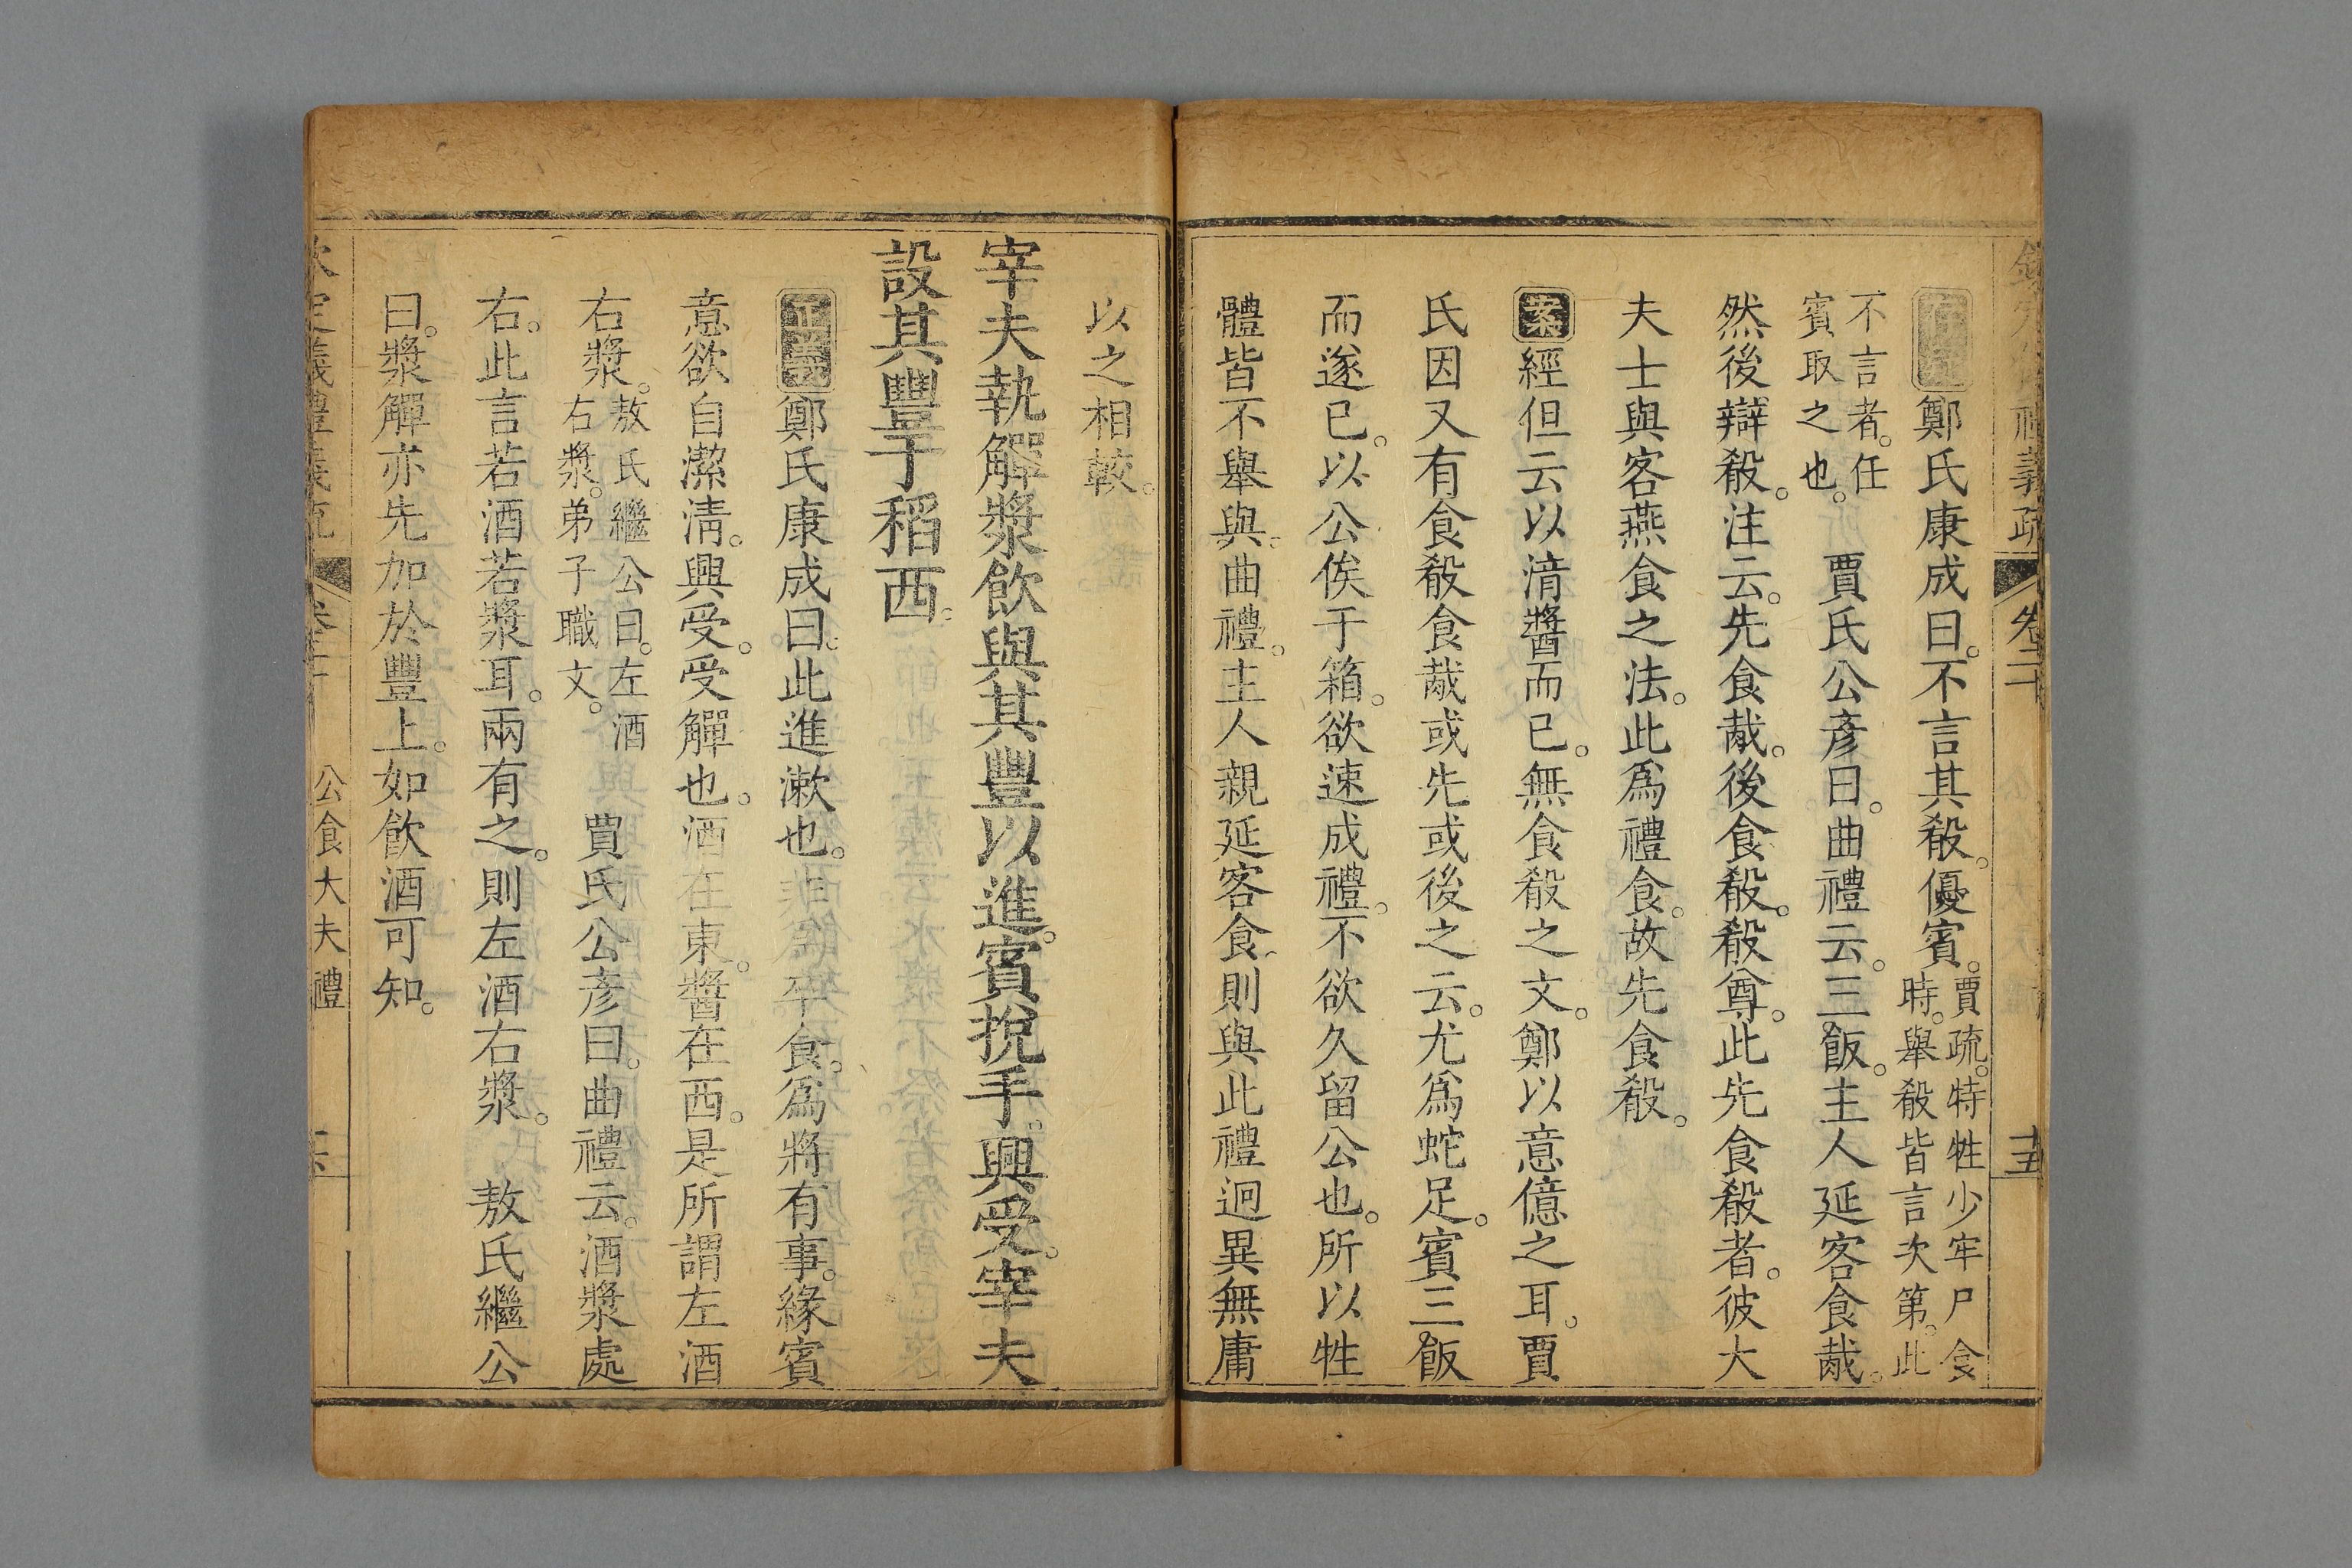 義疏 卷二十 十五
存疑鄭氏康成曰。不言其殽。優賓。賈疏。特牲少牢尸食
時。舉殽皆言次第。此
不言者。任
賓取之也。賈氏公彥曰。曲禮云。三飯。主人延客食胾。
然後辯殽。注云。先食胾。後食殽。殽尊。此先食殽者。彼大
夫士與客燕食之法。此爲禮食。故先食殽。
案經但云以湆醬而已。無食殽之文。鄭以意億之耳。賈
氏因又有食殽食胾或先或後之云。尤爲蛇足。賓三飯
而遂已。以公俟于箱。欲速成禮。不欲久留公也。所以牲
體皆不舉與。曲禮。主人親延客食。則與此禮迥異無庸
以之相較。
宰夫執觶漿飲與其豐以進。賓挩手。興受。宰夫
設其豐于稻西。
正義鄭氏康成曰。此進漱也。非爲卒食。爲將有事。緣賓
意欲自潔清。興受。受觶也。酒在東。漿在西。是所謂左酒
右漿。敖氏繼公曰。左酒
右漿。弟子職文。賈氏公彥曰。曲禮云。酒漿處
右。此言若酒若漿耳。兩有之。則左酒右漿。敖氏繼公
曰。漿觶亦先加於豐上。如飲酒可知。
欽定義禮義疏 卷二十 公食大夫禮